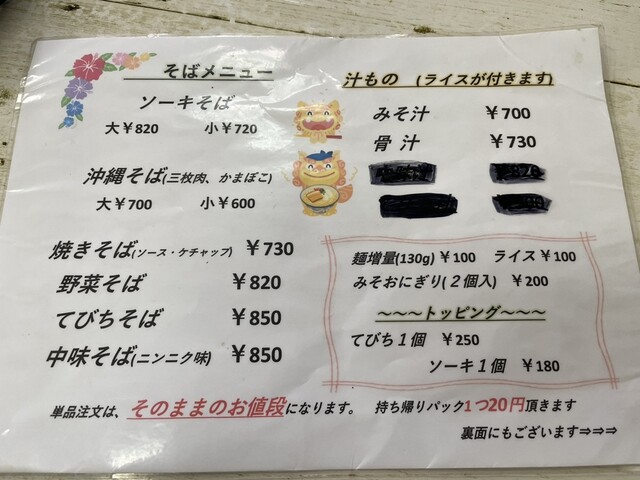 そばメニュー
ソーキそば
大￥820 小￥720
沖縄そば(三枚肉、かまぼこ)
大￥700 小￥600
焼きそば(ソース・ケチャップ) ￥730
野菜そば ￥820
てびちそば ￥850
中味そば(ニンニク味) ￥850
汁もの (ライスが付きます)
みそ汁 ￥700
骨汁 ￥730
麺増量(130g)￥100 ライス￥100
みそおにぎり(２個入) ￥200
～～～トッピング～～～
てびち１個 ￥250
ソーキ１個 ￥180
単品注文は、そのままのお値段になります。 持ち帰りパック1つ20円頂きます
裏面にもございます⇒⇒⇒